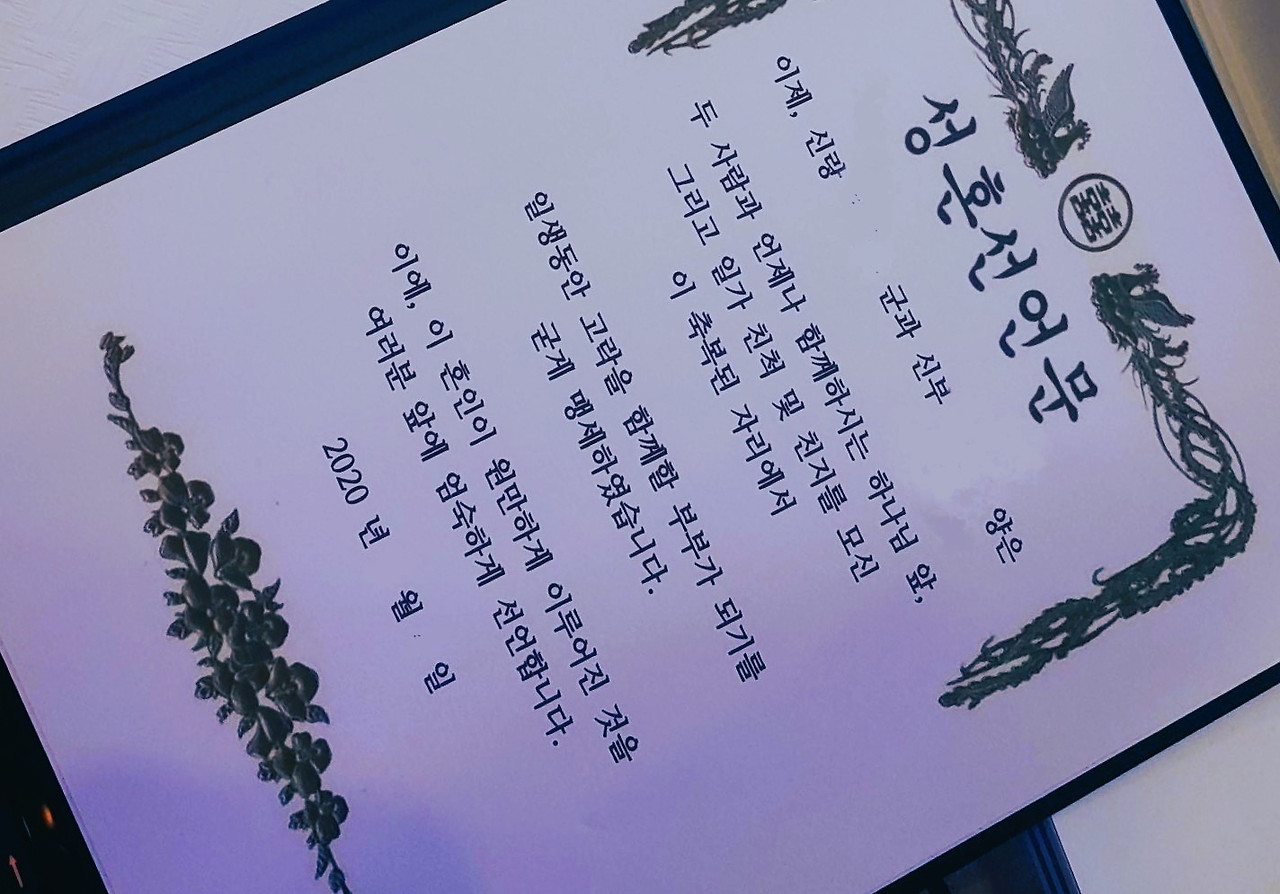 囍
성혼선언문
이제, 신랑 군과 신부 양은
두 사람과 언제나 함께하시는 하나님 앞,
그리고 일가 친척 및 친지를 모신
이 축복된 자리에서
일생동안 고락을 함께할 부부가 되기를
굳게 맹세하였습니다.
이에, 이 혼인이 원만하게 이루어진 것을
여러분 앞에 엄숙하게 선언합니다.
2020 년 월 일